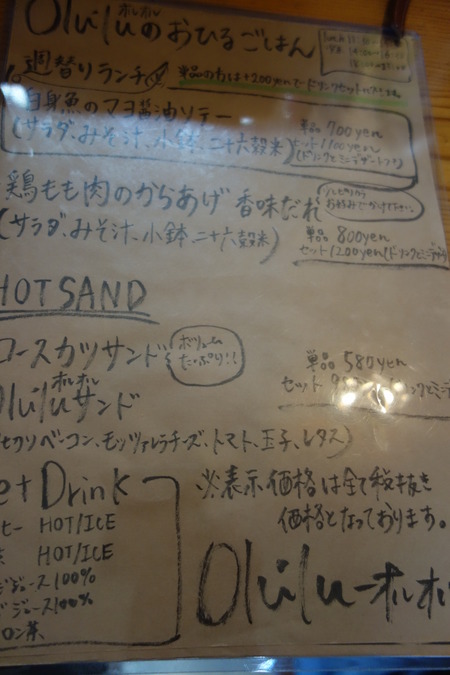 Olulu オルオル のおひるごはん
週替りランチ
単品の方は+200yenでドリンクセットへ
白身魚のマヨ醤油ソテー
(サラダ、みそ汁、小鉢、二十六穀米)
単品 700yen
セット 1100yen
(ドリンクとミニデザートつき)
鶏もも肉のからあげ 香味だれ
お好みでかけて下さい。
(サラダ、みそ汁、小鉢、二十六穀米)
単品 800yen
セット 1200yen(ドリンクとミニデザ
HOT SAND
ロースカツサンド
ボリューム
たっぷり!!
単品 580yen
セット
ドリンクとミニ
Olulu オルオル サンド
ベーコン、モッツァレラチーズ、トマト、玉子、レタス)
et Drink
ヒー HOT/ICE
HOT/ICE
ジジュース100%
ジュース100%
ロン茶
※表示価格は全て税抜き
価格となっております。
Olulu-オルオル